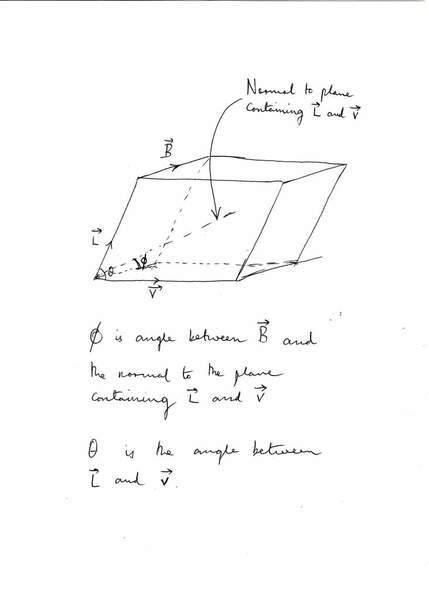 Normal to plane
containing L⃗ and v⃗
B⃗
L⃗
θ
ϕ
v⃗
ϕ is angle between B⃗ and
the normal to the plane
containing L⃗ and v⃗
θ is the angle between
L⃗ and v⃗.